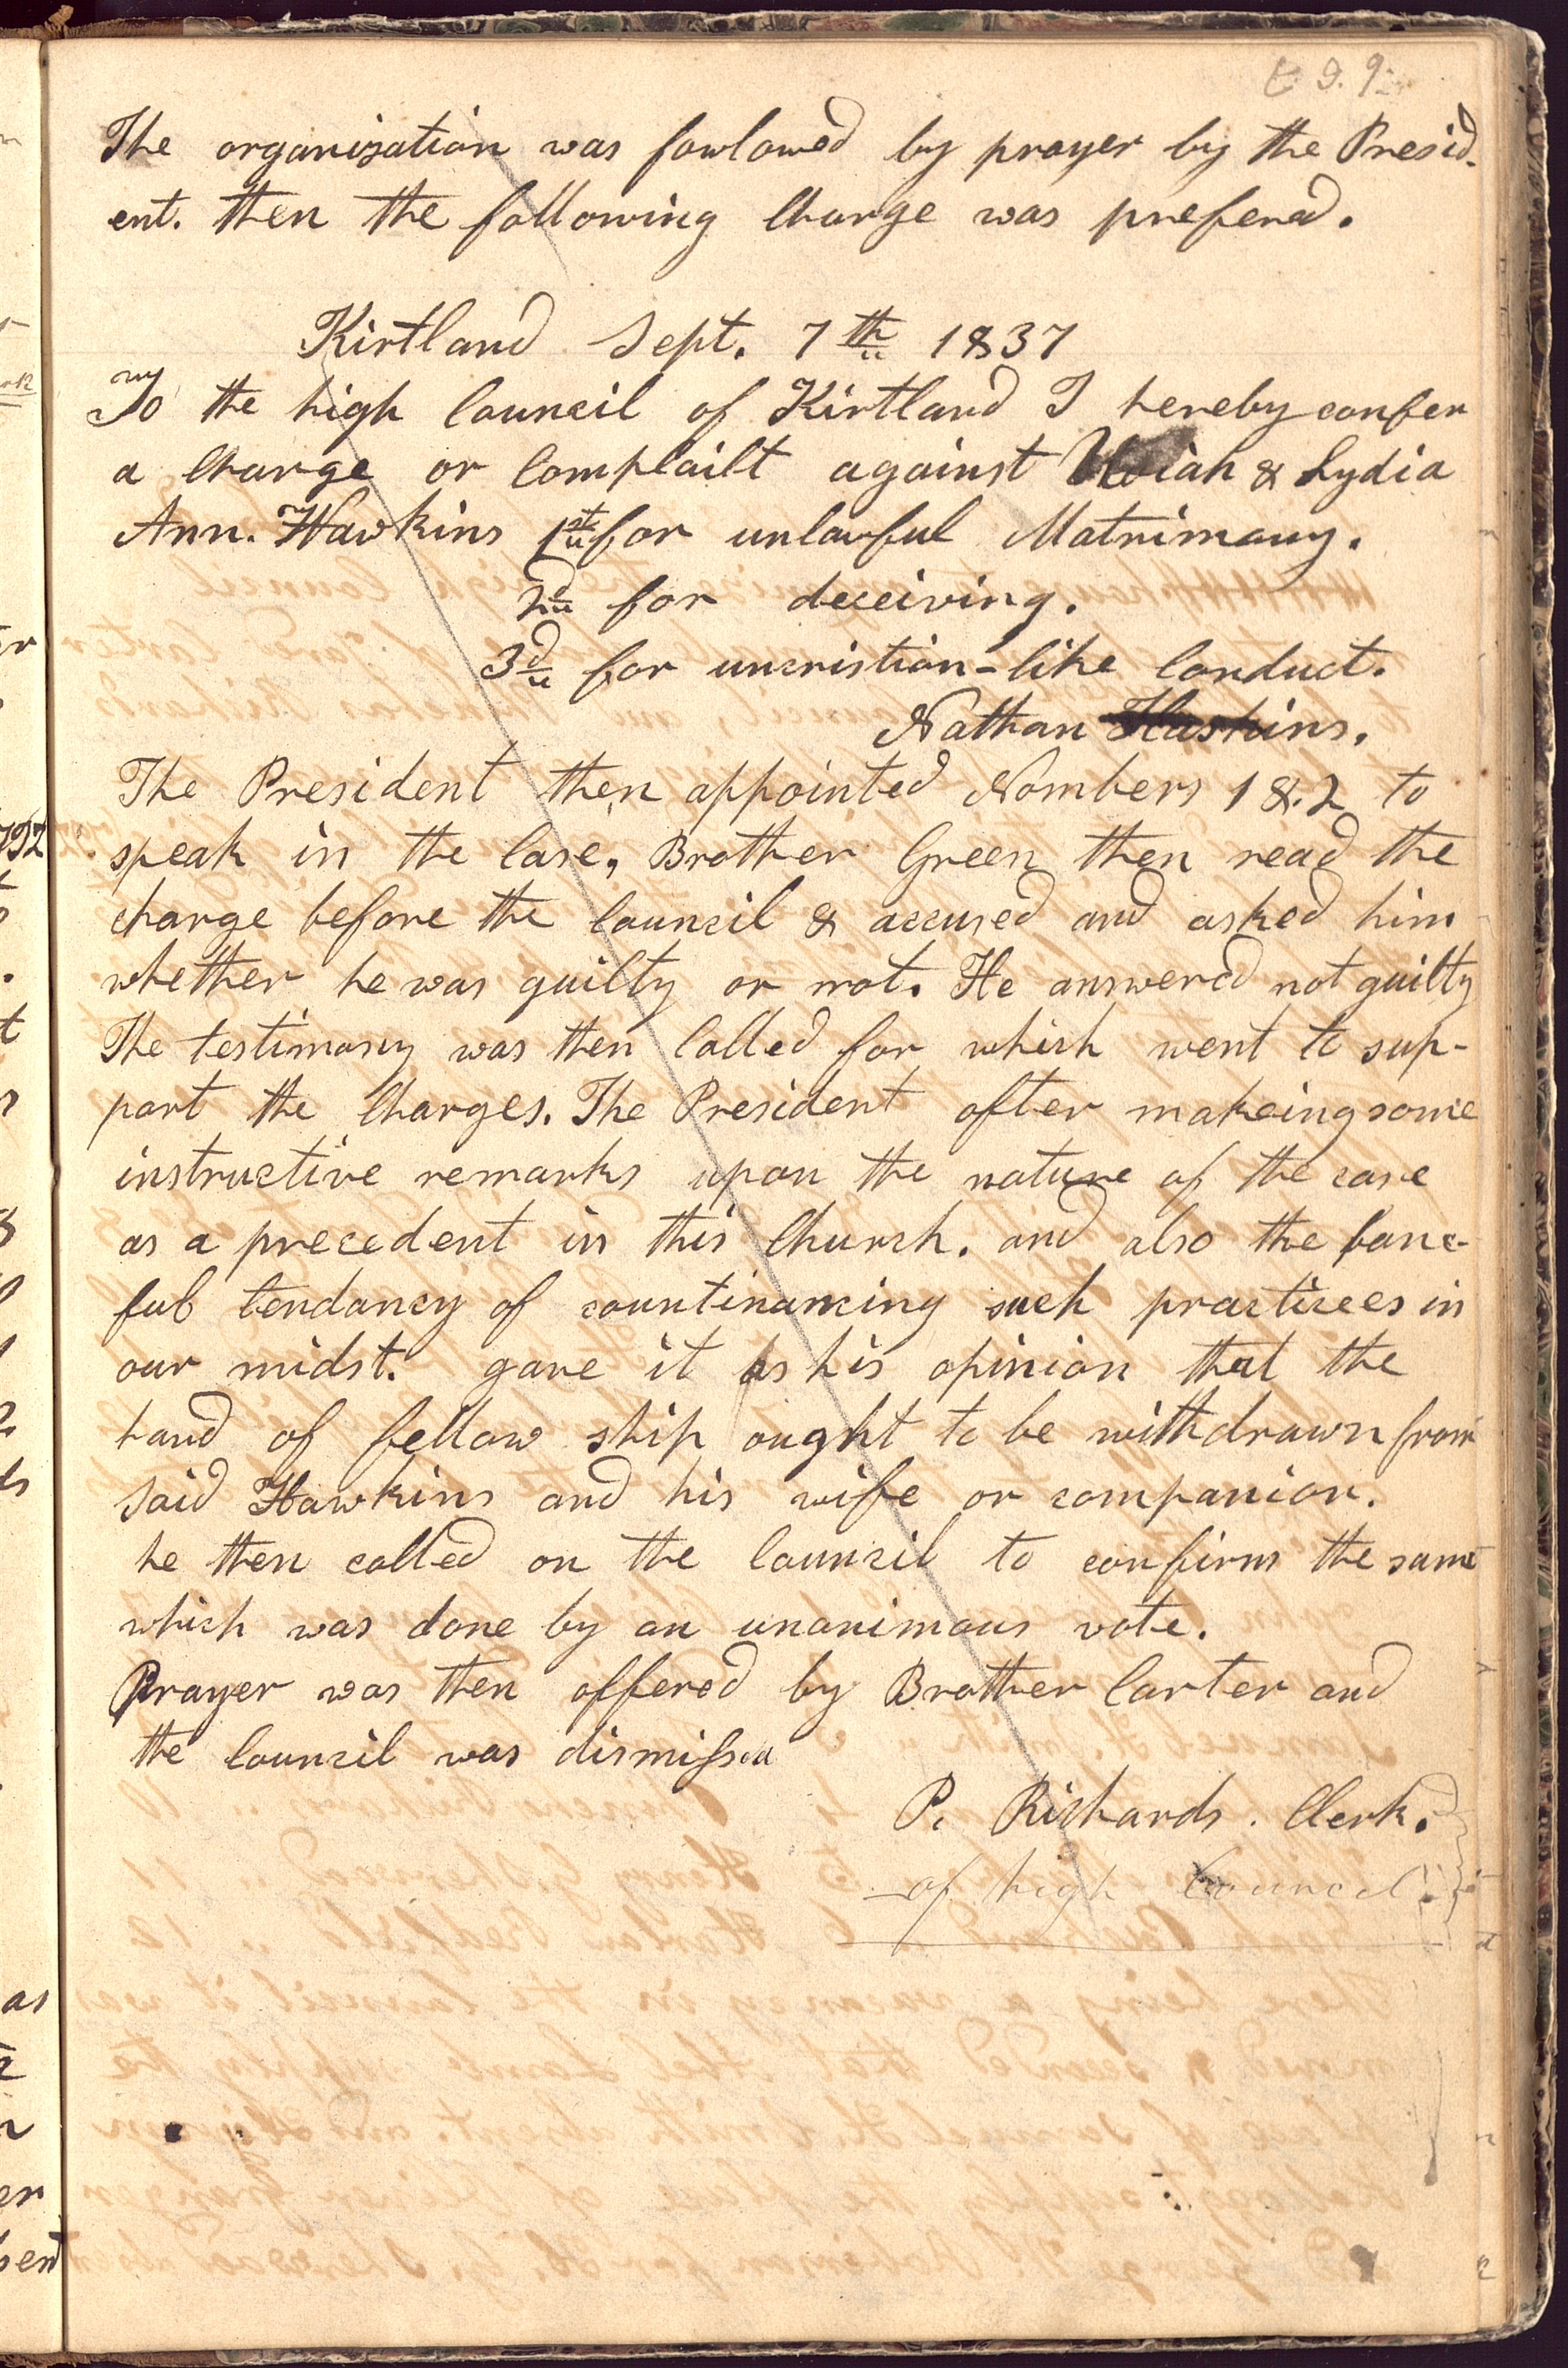 The organization was fowlowed by prayer by the Presid-
ent. then the following Charge was prefered.
Kirtland Sept. 7th 1837
To the high Council of Kirtland I hereby confer
a Charge or Complailt against Uriah & Lydia
Ann. Hawkins 1st for unlawful Matrimony.
2d for deceiving.
3d for uncristian-like Conduct.
Nathan Haskins.
The President then appointed Nombers 1 &.2 to
speak in the Case, Brother Green then read the
charge before the Council & accused and asked him
whether he was guilty or not. He answered not guilty
The testimony was then Called for which went to sup-
port the Charges. The President after makeing some
instructive remarks upon the nature of the case
as a precedent in this Church. and also the bane-
ful tendancy of countinancing such practicees in
our midst. gave it as his opinion that the
hand of fellow ship ought to be withdrawn from
said Hawkins and his wife or companion.
he then called on the Council to confirm the same
which was done by an unanimous vote.
Prayer was then offered by Brother Carter and
the Council was dismissed
P. Richards. Clerk.
of high Council.